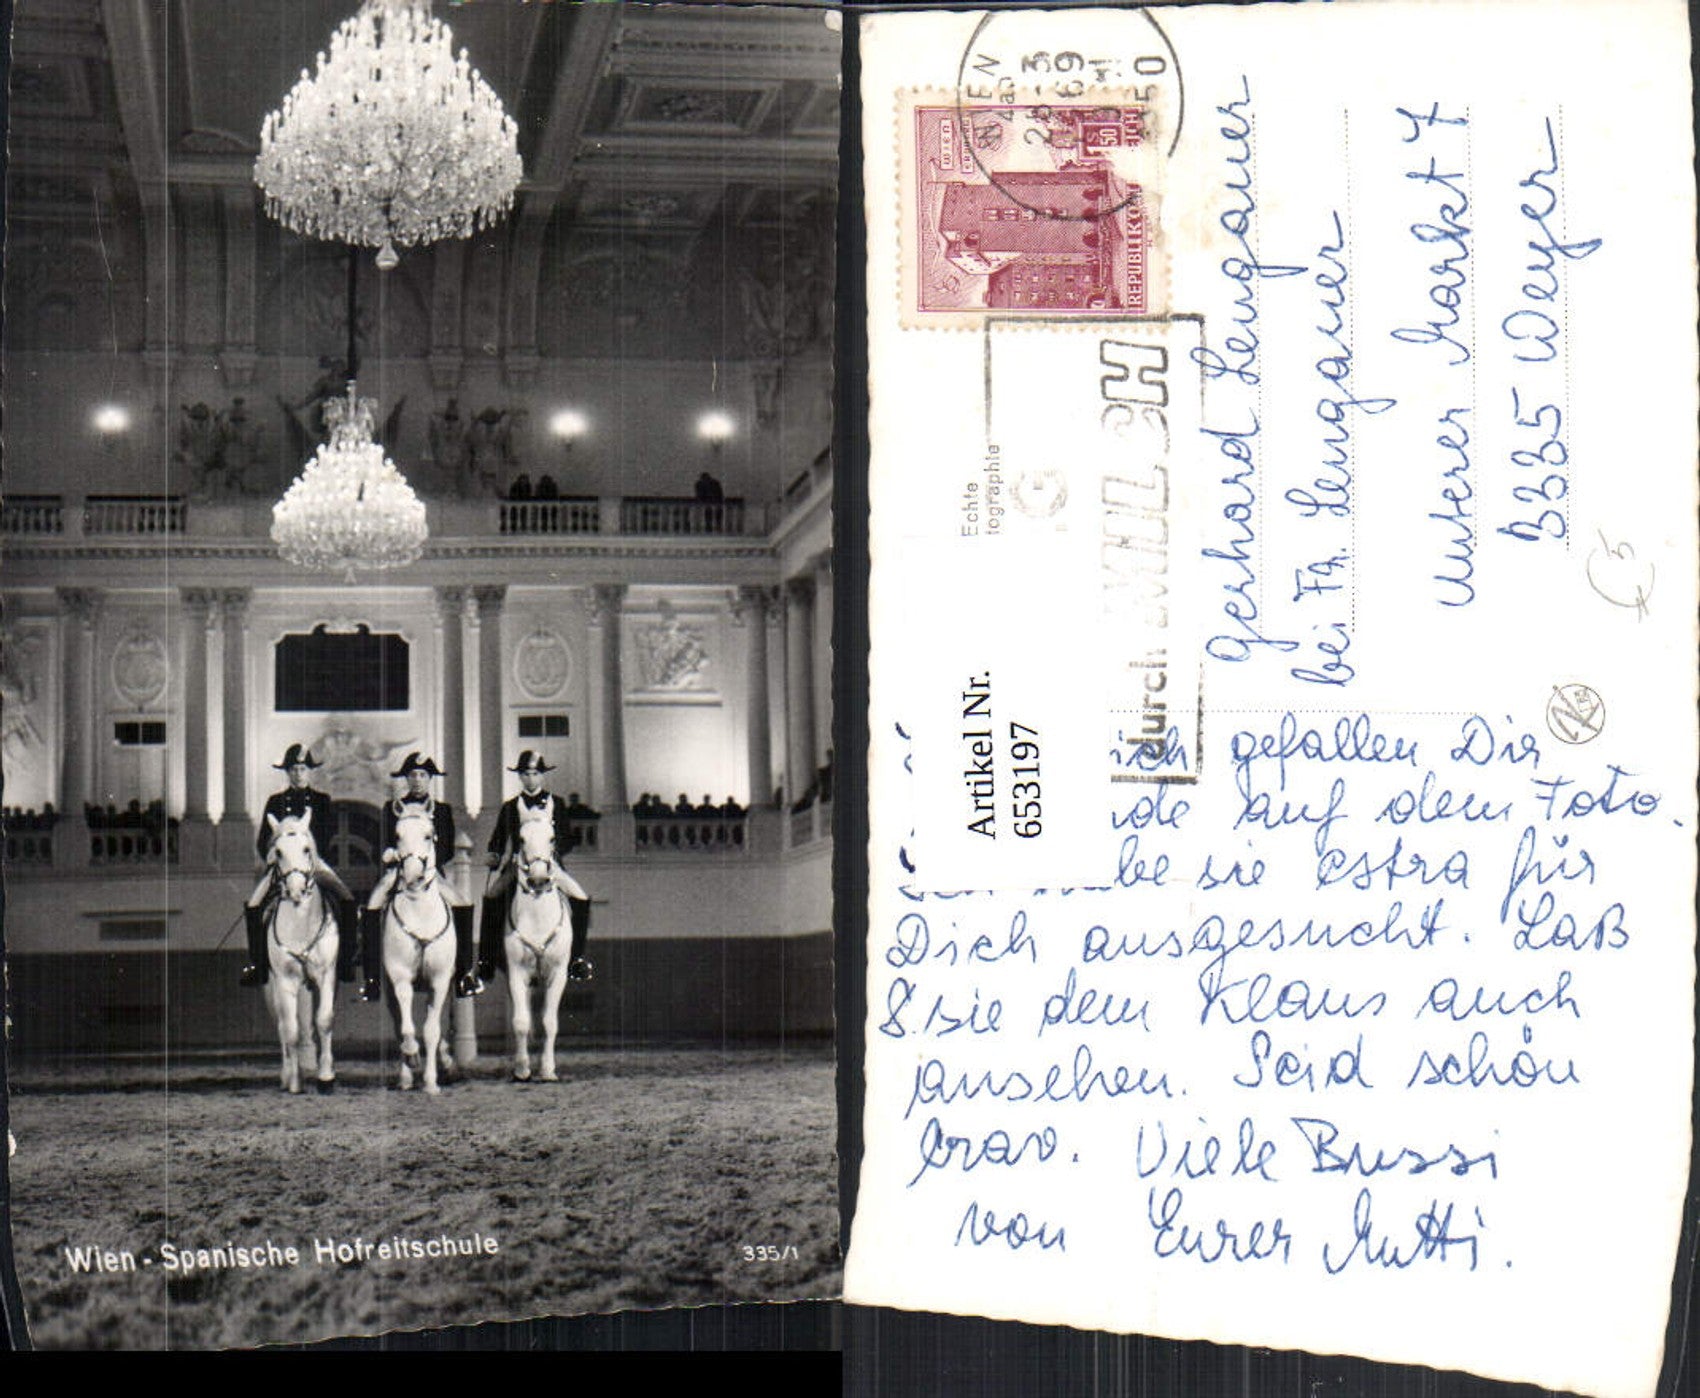 Wien - Spanische Hofreitschule
335/1
WIEN
28.-3
69
1350
WIEN
S
1.50
REPUBLIK
durch
MILCH
Echte
tographie
Artikel Nr.
653197
Gerhard Lengauer
bei Fa. Lengauer
Unterer Markt 7
3335 Weyer
€5
ich gefallen Dir
auf dem Foto.
be sie extra für
Dich ausgesucht. Laß
sie dem Klaus auch
ansehen. Seid schön
brav. Viele Bussi
von Eurer Mutti.